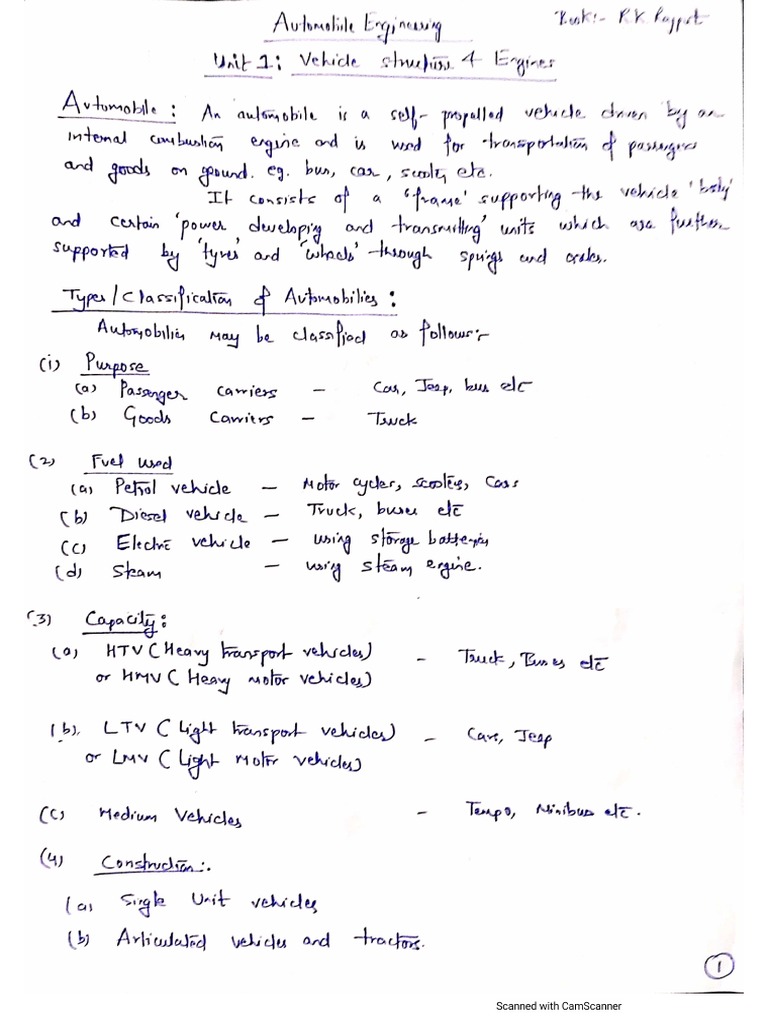 Automobile Engineering
Book:- R.K Rajput
Unit 1: Vehicle structure & Engines
Automobile: An automobile is a self-propelled vehicle driven by an
internal combustion engine and is used for transportation of passengers
and goods on ground. eg. bus, car, scooty etc.
It consists of a 'frame' supporting the vehicle 'body'
and certain 'power developing and transmitting' units which are further
supported by 'tyres' and 'wheels' through springs and axles.
Types/Classification of Automobilies:
Automobilies may be classified as follows:-
(i) Purpose
(a) Passenger carriers - Car, Jeep, bus etc
(b) Goods Carriers - Truck
(2) Fuel used
(a) Petrol vehicle - Motor cycles, scooters, Cars
(b) Diesel vehicle - Truck, buses etc
(c) Electric vehicle - using storage batteries
(d) Steam - using steam engine.
(3) Capacity:
(a) HTV (Heavy transport vehicles) - Truck, Buses etc
or HMV (Heavy motor vehicles)
(b). LTV (Light transport vehicles) - Cars, Jeep
or LMV (Light Motor vehicles)
(c) Medium Vehicles - Tempo, Minibus etc.
(4) Construction:.
(a) Single Unit vehicles
(b) Articulated vehicles and tractors.
1
Scanned with CamScanner